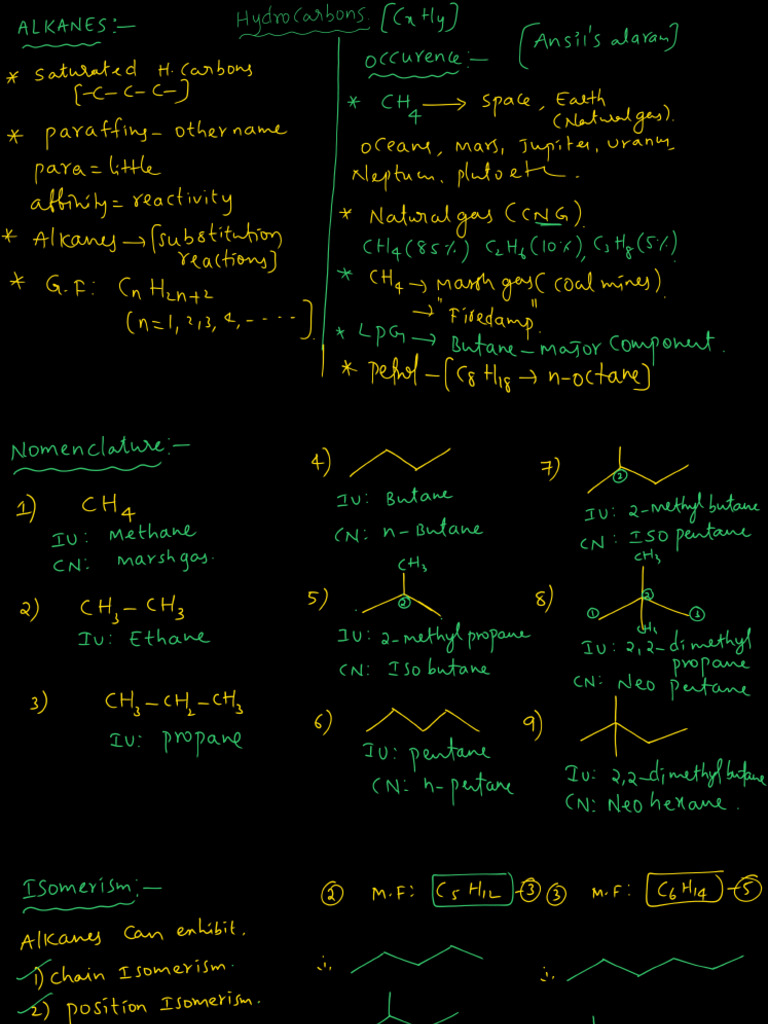 Hydrocarbons [CxHy]
ALKANES:-
* Saturated H.Carbons
[-C-C-C-]
* paraffins - other name
para = little
affinity = reactivity
* Alkanes → [substitution
reactions]
* G.F: CnH2n+2
(n=1, 2, 3, 4, - - - - -]
[Ansil's alaram]
Occurence:-
* CH4 → space, Earth
(Natural gas).
Oceans, mars, Jupiter, uranus,
Neptum, pluto etc.
* Natural gas (CNG)
CH4 (85%) C2H6 (10%), C3H8 (5%)
* CH4 → marsh gas (coal mines)
→ "Firedamp"
* LPG → Butane - major component.
* Petrol - [C8H18 → n-octane]
Nomenclature:-
1) CH4
IU: Methane
CN: marsh gas.
2) CH3 - CH3
IU: Ethane
3) CH3 - CH2 - CH3
IU: propane
4)
IU: Butane
CN: n-Butane
CH3
5)
2
IU: 2-methyl propane
CN: Iso butane
6)
IU: pentane
CN: n-pentane
7)
2
IU: 2-methyl butane
CN: ISO pentane
CH3
8)
1 2 3
CH3
IU: 2,2-dimethyl
propane
CN: Neo pentane
9)
IU: 2,2-dimethyl butane
CN: Neo hexane.
Isomerism:-
Alkanes can exhibit.
1) chain Isomerism.
2) position Isomerism.
② M.F: C5H12 - ③
i.
③ M.F: C6H14 - ⑤
i.